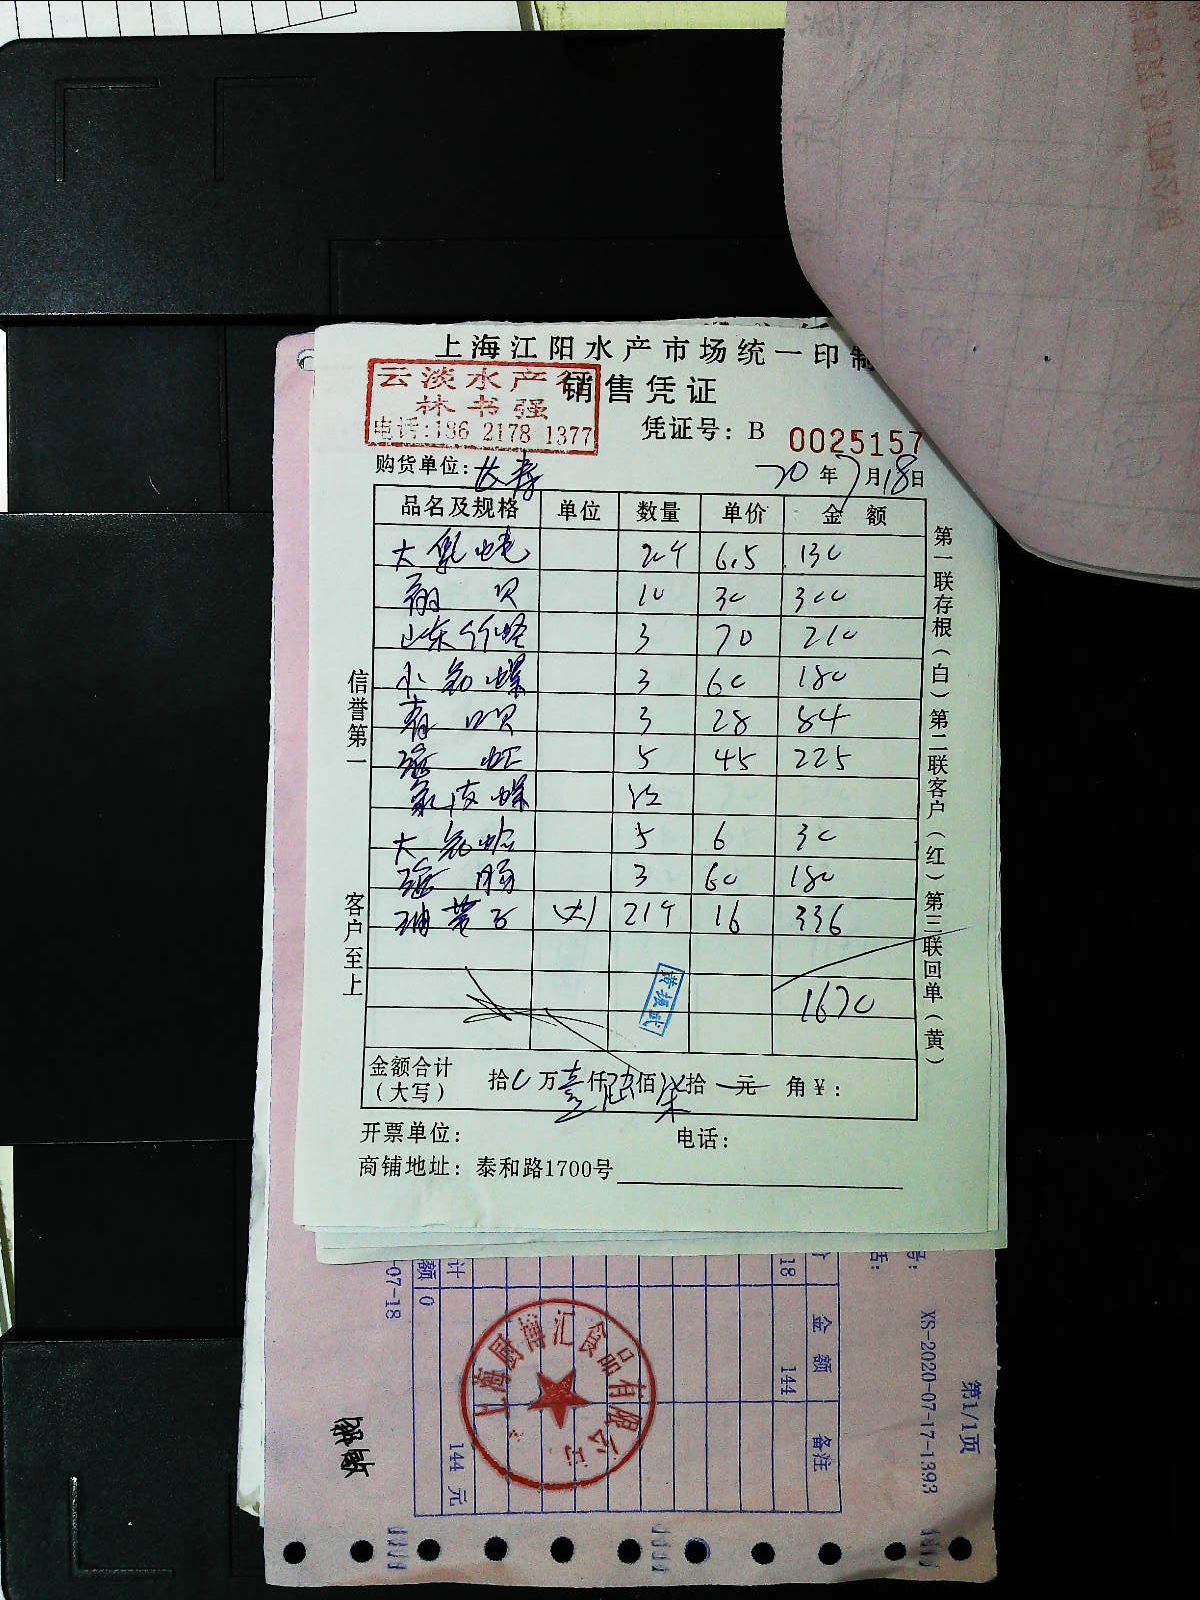 上海江阳水产市场统一印制
云淡水产行
销售凭证
林书强
电话:186 2178 1377
凭证号: B 0025157
购货单位: 长寿
20年7月18日
品名及规格 单位 数量 单价 金额
6.5 130
贝 10 30 300
山东竹蛏 3 70 210
小 螺 3 60 180
青口贝 3 28 84
5 45 225
螺
大 5 6 30
海肠 3 60 180
带子 (大) 214 16 336
1670
黄振武
金额合计(大写) 拾0万壹仟陆佰柒拾 元 角¥:
开票单位: 电话:
商铺地址: 泰和路1700号
信誉第一
客户至上
第一联存根(白)第二联客户(红)第三联回单(黄)
第1/1页
XS-2020-07-17-1393
号:
话:
金额 备注
18 144
计 144 元
额 0
-07-18
上海厨博汇食品有限公司